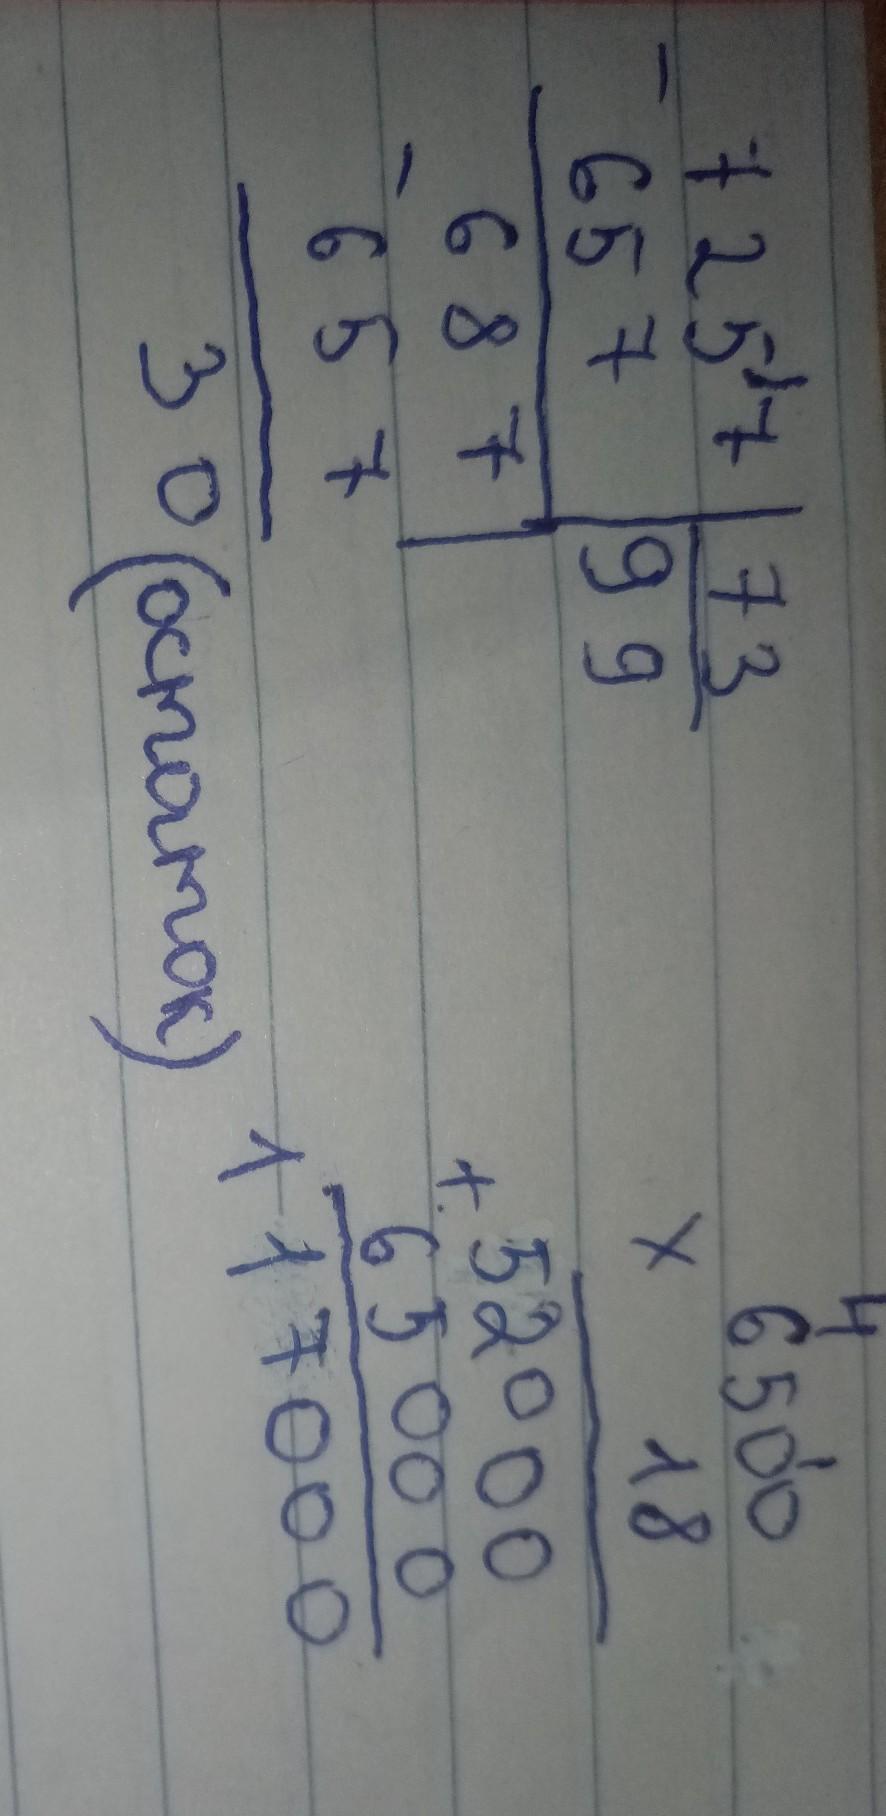 7257 | 73
- 657 | 99
- 687
657
30 (остаток)
4
6500
× 18
52000
+ 65000
117000